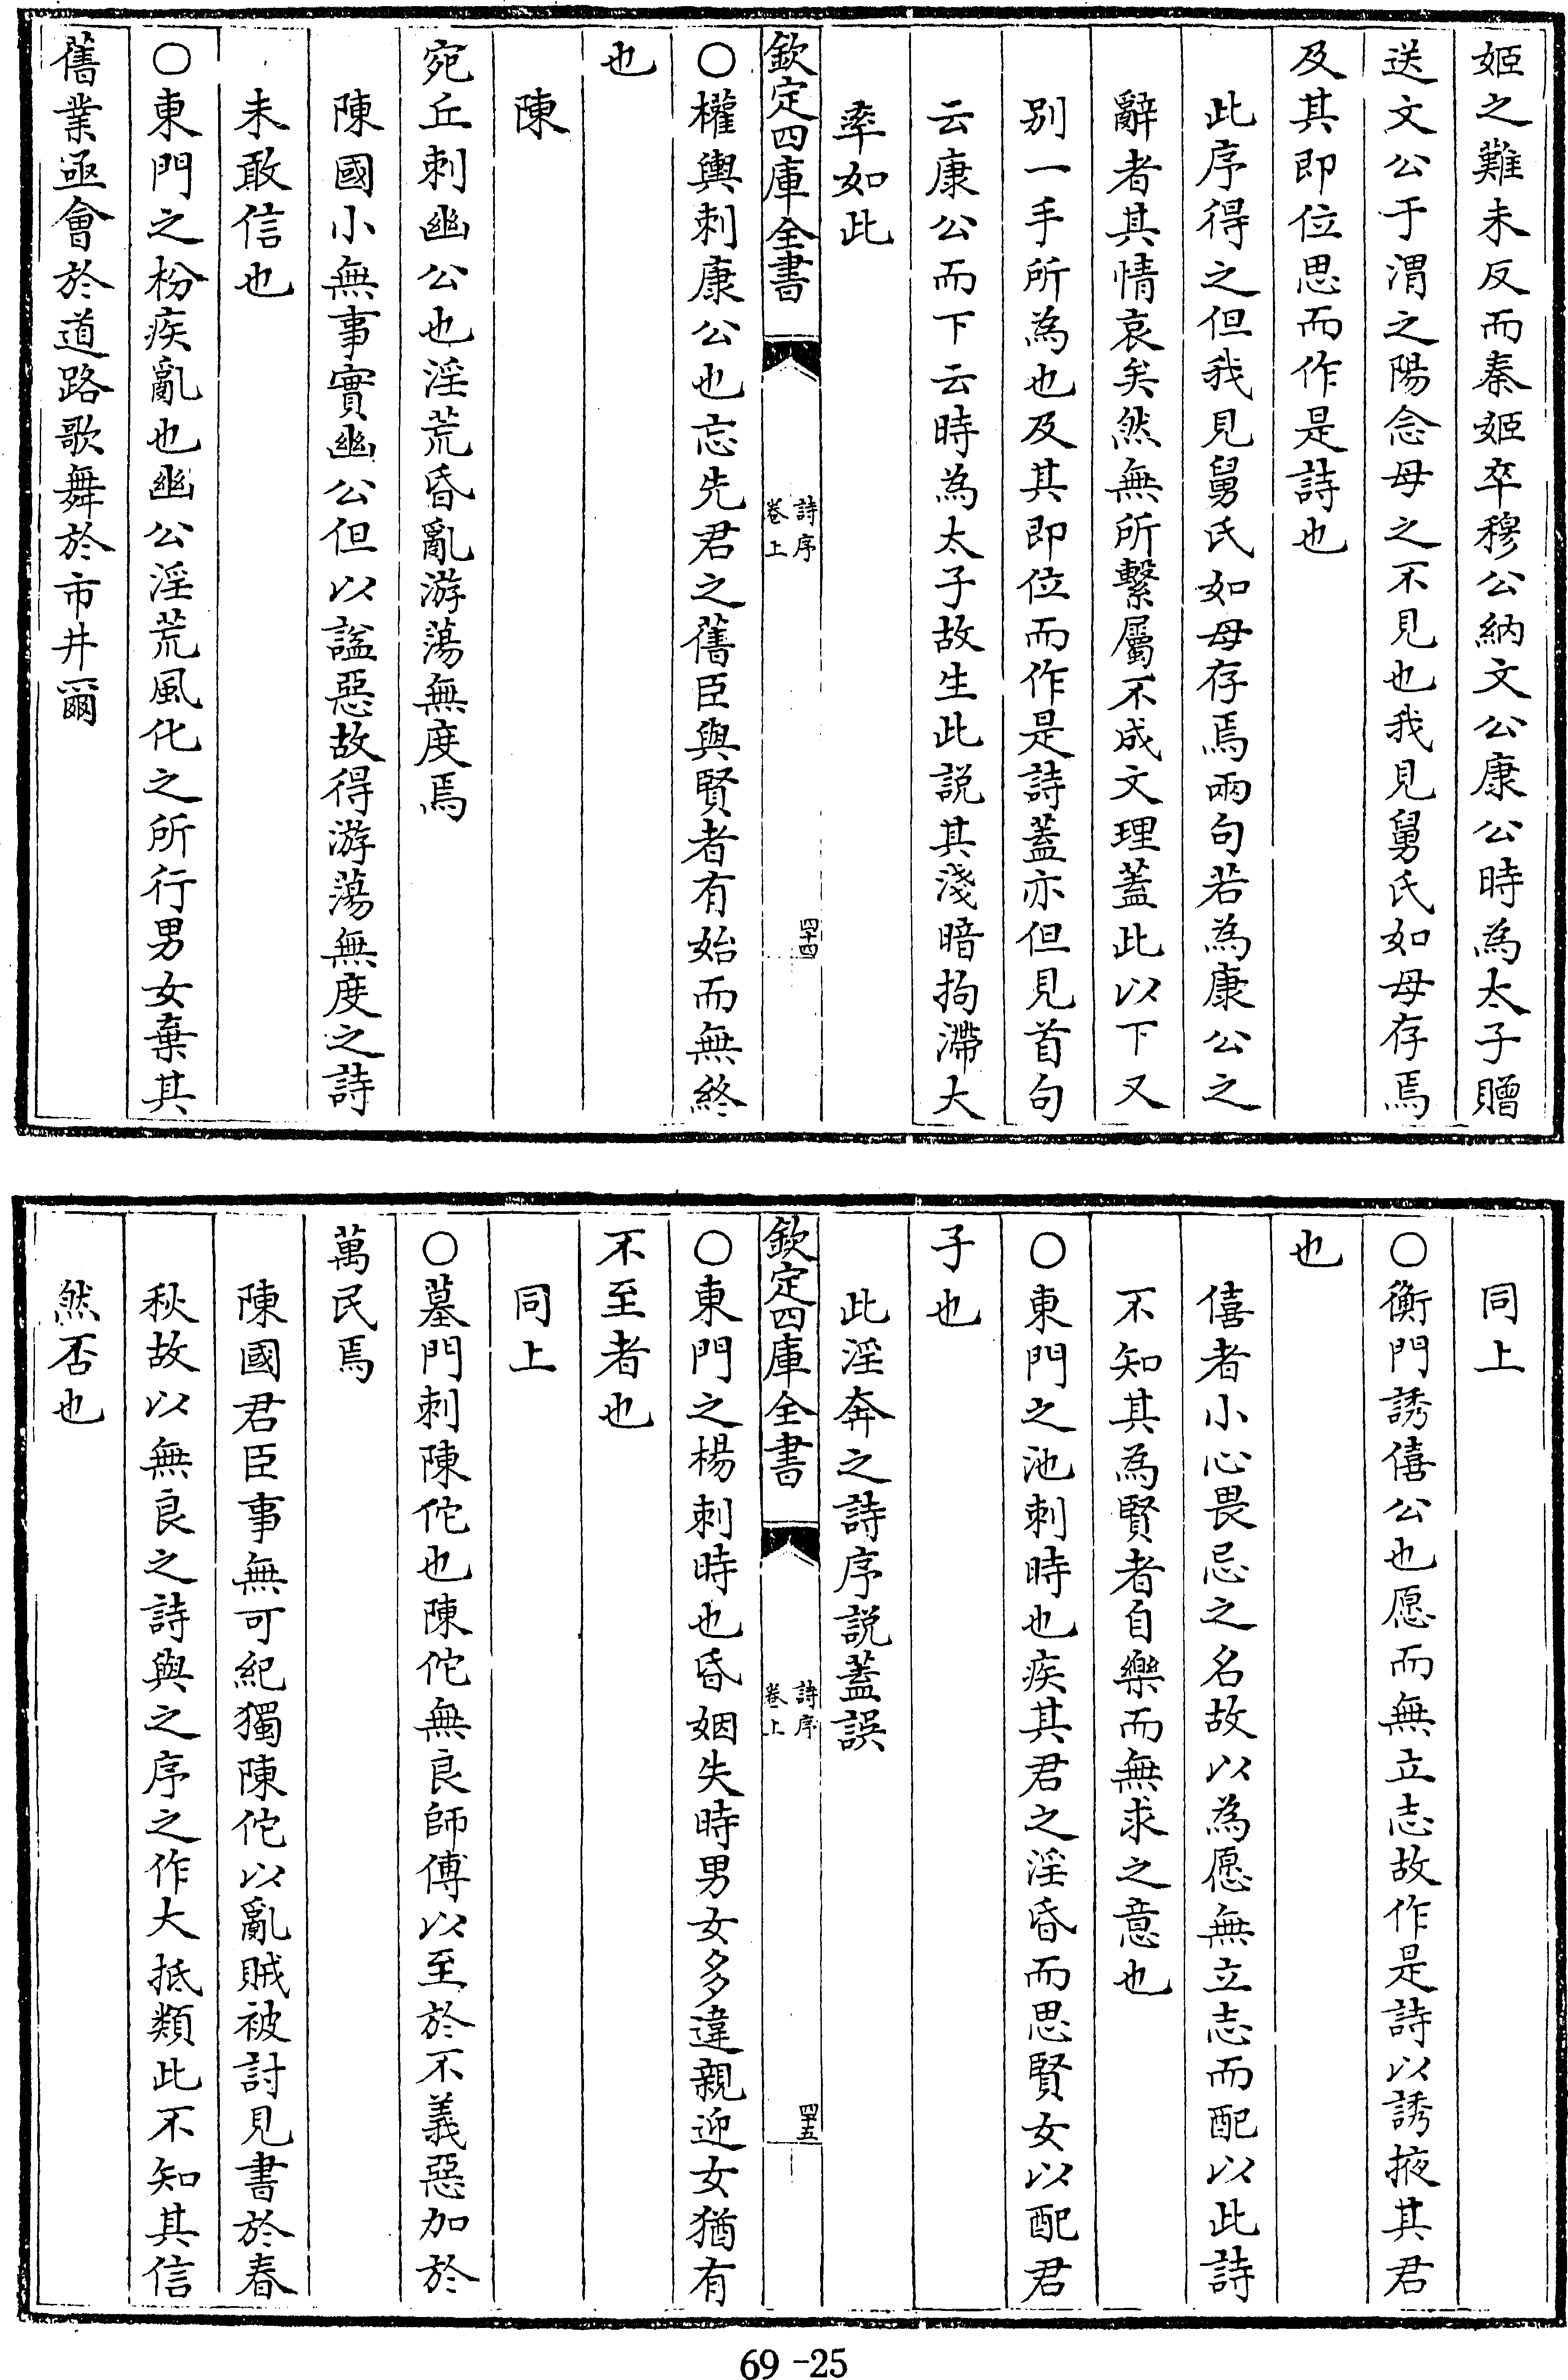 姬之難未反而秦姬卒穆公納文公康公時為太子贈
送文公于渭之陽念母之不見也我見舅氏如母存焉
及其即位思而作是詩也
此序得之但我見舅氏如母存焉兩句若為康公之
辭者其情哀矣然無所繫屬不成文理蓋此以下又
别一手所為也及其即位而作是詩蓋亦但見首句
云康公而下云時為太子故生此説其淺暗拘滯大
率如此
欽定四庫全書
詩序
卷上
四十四
〇權輿刺康公也忘先君之舊臣與賢者有始而無終
也
陳
宛丘刺幽公也淫荒昏亂游蕩無度焉
陳國小無事實幽公但以諡惡故得游蕩無度之詩
未敢信也
〇東門之枌疾亂也幽公淫荒風化之所行男女棄其
舊業亟會於道路歌舞於市井爾
同上
〇衡門誘僖公也愿而無立志故作是詩以誘掖其君
也
僖者小心畏忌之名故以為愿無立志而配以此詩
不知其為賢者自樂而無求之意也
〇東門之池刺時也疾其君之淫昏而思賢女以配君
子也
此淫奔之詩序説蓋誤
欽定四庫全書
詩序
卷上
四十五
〇東門之楊刺時也昏姻失時男女多違親迎女猶有
不至者也
同上
〇墓門刺陳佗也陳佗無良師傅以至於不義惡加於
萬民焉
陳國君臣事無可紀獨陳佗以亂賊被討見書於春
秋故以無良之詩與之序之作大抵類此不知其信
然否也
69-25